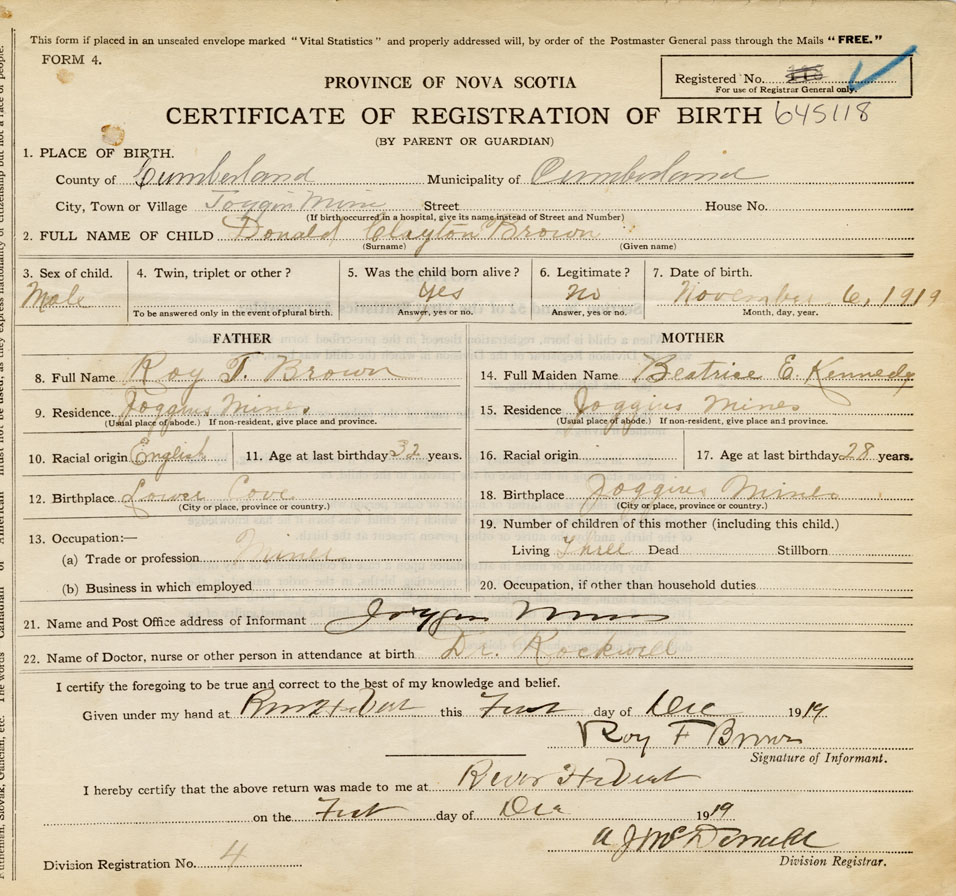 This form if placed in an unsealed envelope marked "Vital Statistics" and properly addressed will, by order of the Postmaster General pass through the Mails "FREE."
FORM 4.
Registered No. 118
For use of Registrar General only.
PROVINCE OF NOVA SCOTIA
CERTIFICATE OF REGISTRATION OF BIRTH 645118
(BY PARENT OR GUARDIAN)
1. PLACE OF BIRTH.
County of Cumberland Municipality of Cumberland
City, Town or Village Joggin Mine Street House No.
(If birth occurred in a hospital, give its name instead of Street and Number)
2. FULL NAME OF CHILD Donald Clayton Brown
(Surname) (Given name)
3. Sex of child. 4. Twin, triplet or other? 5. Was the child born alive? 6. Legitimate? 7. Date of birth.
Male Yes no November 6, 1919
To be answered only in the event of plural birth. Answer, yes or no. Answer, yes or no. Month, day, year.
FATHER
8. Full Name Roy T. Brown
9. Residence Joggins Mines
(Usual place of abode.) If non-resident, give place and province.
10. Racial origin English 11. Age at last birthday 32 years.
12. Birthplace Lower Cove
(City or place, province or country.)
13. Occupation:—
(a) Trade or profession Miner
(b) Business in which employed
MOTHER
14. Full Maiden Name Beatrise E. Kennedy
15. Residence Joggins Mines
(Usual place of abode.) If non-resident, give place and province.
16. Racial origin 17. Age at last birthday 28 years.
18. Birthplace Joggins Mines
(City or place, province or country.)
19. Number of children of this mother (including this child.)
Living Three Dead Stillborn
20. Occupation, if other than household duties
21. Name and Post Office address of Informant Joggin Mines
22. Name of Doctor, nurse or other person in attendance at birth Dr. Rockwell
I certify the foregoing to be true and correct to the best of my knowledge and belief.
Given under my hand at River Hebert this First day of Dec 1919
Roy F Brown
Signature of Informant.
I hereby certify that the above return was made to me at River Hebert
on the First day of Dec 1919
A J McDonald
Division Registrar.
Division Registration No. 4